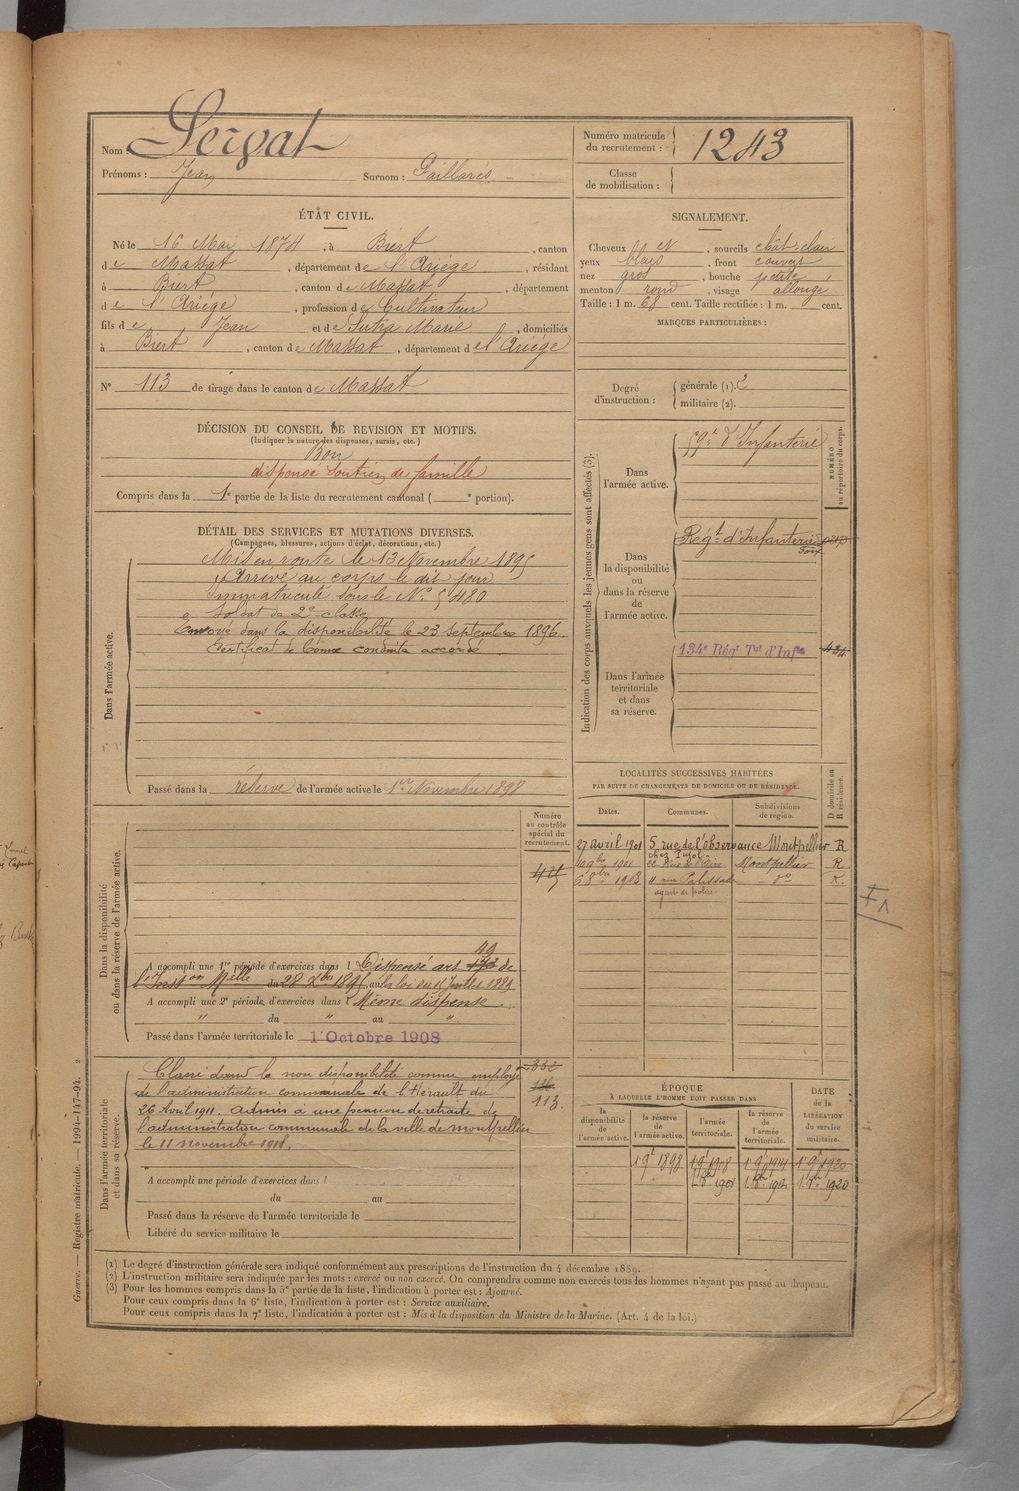 Nom : Servat
Prénoms : Jean Surnom : Paillarés
Numéro matricule du recrutement : 1243
Classe de mobilisation :
ÉTAT CIVIL.
Né le 16 Mai 1874, à Biert, canton
de Massat, département de l'Ariége, résidant
à Biert, canton de Massat, département
de l'Ariége, profession de Cultivateur
fils de Jean et de Sutra Marie, domiciliés
à Biert, canton de Massat, département de l'Ariége
N° 113 de tirage dans le canton de Massat
SIGNALEMENT.
Cheveux blond, sourcils chât. clair
yeux bleus, front couvert
nez gros, bouche petite
menton rond, visage allongé
Taille : 1 m. 68 cent. Taille rectifiée : 1 m. cent.
MARQUES PARTICULIÈRES :
Degré d'instruction : générale (1). 2
militaire (2).
DÉCISION DU CONSEIL DE REVISION ET MOTIFS.
(Indiquer la nature des dispenses, sursis, etc.)
Bon
dispensé soutien de famille
Compris dans la 1e partie de la liste du recrutement cantonal ( e portion).
DÉTAIL DES SERVICES ET MUTATIONS DIVERSES.
(Campagnes, blessures, actions d'éclat, décorations, etc.)
Dans l'armée active.
Mis en route le 13 Novembre 1895
Arrivé au corps le dit jour
Immatriculé sous le N° 5480
Soldat de 2e classe
Envoyé dans la disponibilité le 23 septembre 1896.
Certificat de bonne conduite accordé
Passé dans la réserve de l'armée active le 1er Novembre 1898
Indication des corps auxquels les jeunes gens sont affectés (3).
NUMÉRO au répertoire du corps.
Dans l'armée active.
59e d'Infanterie
Dans la disponibilité ou dans la réserve de l'armée active.
Régt d'Infanterie
Foix
Dans l'armée territoriale et dans sa réserve.
134e Régt Tal d'Infie
434
LOCALITÉS SUCCESSIVES HABITÉES
PAR SUITE DE CHANGEMENTS DE DOMICILE OU DE RÉSIDENCE.
Dates. Communes. Subdivisions de région. D domicile ou R résidence.
27 avril 1901 5, rue de l'Observance Montpellier R
chez Pujol
10 9bre 1901 Montpellier R.
6 8bre 1903 11 rue Palissade - do R.
agent de police
Dans la disponibilité ou dans la réserve de l'armée active.
Numéro au contrôle spécial du recrutement.
49
A accompli une 1re période d'exercices dans l Dispensé art 173 de
l'Inston Melle du 28 Xbre 1895, au la loi du 15 Juillet 1889
A accompli une 2e période d'exercices dans l Même dispense
" du " au "
Passé dans l'armée territoriale le 1 Octobre 1908
Dans l'armée territoriale et dans sa réserve.
Classé dans la non disponibilité comme employé
de l'administration communale de l'Hérault du
26 Avril 1911. Admis à une pension de retraite de
l'administration communale de la ville de Montpellier
le 11 novembre 1918.
113.
A accompli une période d'exercices dans l
du au
Passé dans la réserve de l'armée territoriale le
Libéré du service militaire le
ÉPOQUE
À LAQUELLE L'HOMME DOIT PASSER DANS
la disponibilité de l'armée active. la réserve de l'armée active. l'armée territoriale. la réserve de l'armée territoriale. DATE de la LIBÉRATION du service militaire.
1 9e 1898 1 9e 1908 1 9e 1914 1 9e 1920
(1) Le degré d'instruction générale sera indiqué conformément aux prescriptions de l'instruction du 4 décembre 1889.
(2) L'instruction militaire sera indiquée par les mots : exercé ou non exercé. On comprendra comme non exercés tous les hommes n'ayant pas passé au drapeau.
(3) Pour les hommes compris dans la 5e partie de la liste, l'indication à porter est : Ajourné.
Pour ceux compris dans la 6e liste, l'indication à porter est : Service auxiliaire.
Pour ceux compris dans la 7e liste, l'indication à porter est : Mis à la disposition du Ministre de la Marine. (Art. 4 de la loi.)
Guerre. — Registre matricule. — 1994-147-94. 2